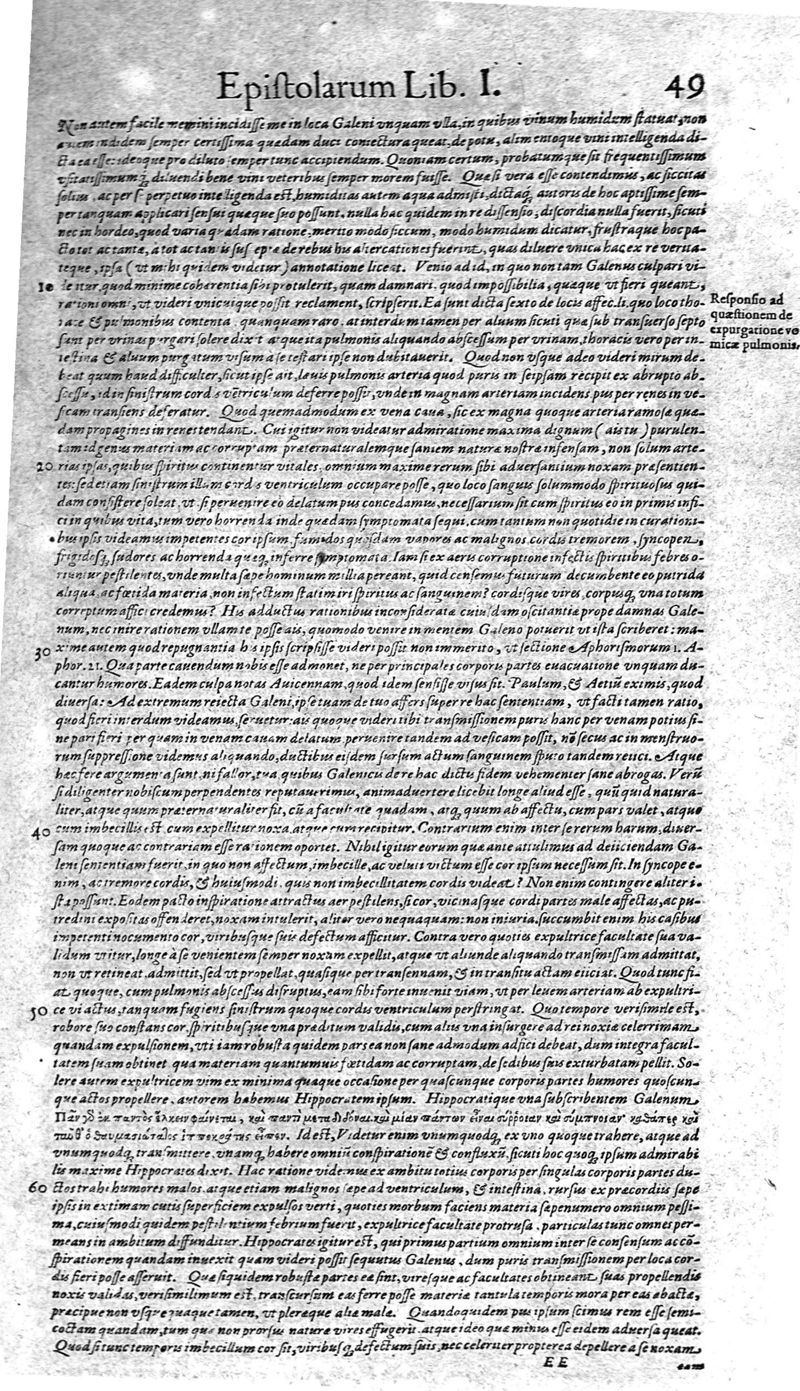 Epistolarum Lib. I. 49
Non autem facile memini incidisse me in loca Galeni vnquam vlla, in quibus vinum humidum statuat, non
autem ibidem semper certissima quædam duci coniectura queat, de potu, alimentoque vini intelligenda di-
cta ea esse: ideoque pro diluto semper tunc accipiendum. Quoniam certum, probatumque sit frequentissimum
vsitatissimumq́, diluendi bene vini veteribus semper morem fuisse. Quæ si vera esse contendimus, ac siccitas
solius, ac per se perpetuo intelligenda est, humiditas autem aqua admisti, dictaq́, autoris de hoc aptissime sem-
per tanquam applicari sensui quæque suo possunt, nulla hac quidem in re dissensio, discordia nulla fuerit, sicuti
nec in hordeo, quod varia quadam ratione, merito modo siccum, modo humidum dicatur, frustraque hoc pa-
cto tot ac tantæ, à tot ac tantis susceptæ de rebus his altercationes fuerint, quas diluere vnica hac, ex re verita-
teque, ipsa (vt mihi quidem videtur) annotatione liceat. Venio ad id, in quo non tam Galenus culpari vi-
10 detur, quod minime coherentia sibi protulerit, quam damnari, quod impossibilia, quæque vt fieri queant,
rationi omni, vt videri vnicuique possit reclament, scripserit. Ea sunt dicta sexto de locis affec. li. quo loco tho-
race & pulmonibus contenta, quanquam raro, at interdum tamen per aluum sicuti quæ sub transuerso septo
sunt per vrinas purgari solere dixit atque ita pulmonis aliquando abscessum per vrinam, thoracis vero per in-
testina & aluum purgatum visum à se testari ipse non dubitauerit. Quod non vsque adeo videri mirum de-
beat quum haud difficulter, sicut ipse ait, leuis pulmonis arteria quod puris in seipsam recipit ex abrupto ab-
scessu, id in sinistrum cordis vẽtriculum deferre possit, vnde in magnam arteriam incidens pus per renes in ve-
sicam transiens deferatur. Quod quemadmodum ex vena caua, sic ex magna quoque arteria ramosæ quæ-
dam propagines in renes tendant. Cui igitur non videatur admiratione maxima dignum (ais tu) purulen-
tam id genus materiam ac corruptam præternaturalemque saniem naturæ nostræ infensam, non solum arte-
20 rias ipsas, quibus spiritus continentur vitales, omnium maxime rerum sibi aduersantium noxam præsentien-
tes: sed etiam sinistrum illum cordis ventriculum occupare posse, quo loco sanguis solummodo spirituosus qui-
dam consistere soleat, vt si peruenire eò delatum pus concedamus, necessarium sit cum spiritus eo in primis infi-
ci in quibus vita, tum vero horrenda inde quædam symptomata sequi, cum tantum non quotidie in curationi-
bus ipsis videamus impetentes cor ipsum, fumidos quosdam vapores ac malignos, cordis tremorem, syncopen,
frigidosq́, sudores ac horrenda quæq́, inferre symptomata. Iam si ex aeris corruptione infectis spiritibus febres o-
riuntur pestilentes, vnde multa sæpe hominum millia pereant, quid censemus futurum decumbente eo putrida
aliqua, ac fœtida materia, non infectum statim iri spiritus ac sanguinem? cordisque vires, corpusq́, vna totum
correptum affici credemus? His adductus rationibus inconsideratæ cuiusdam oscitantiæ prope damnas Gale-
num, nec inire rationem vllam te posse ais, quomodo venire in mentem Galeno potuerit vt ista scriberet: ma-
30 xime autem quod repugnantia his ipsis scripsisse videri possit non immerito, vt sectione Aphorismorum 1. A-
phor. 21. Qua parte cauendum nobis esse admonet, ne per principales corporis partes euacuatione vnquam du-
cantur humores. Eadem culpa notas Auicennam, quod idem sensisse visus sit. Paulum, & Aetiũ eximis, quod
diuersa: Ad extremum reiecta Galeni, ipse tuam de tuo affers super re hac sententiam, vt facti tamen ratio,
quod fieri interdum videamus, seruetur: ais quoque videri tibi transmissionem puris hanc per venam potius si-
ne pari fieri per quam in venam cauam delatum, peruenire tandem ad vesicam possit, nõ secus ac in menstruo-
rum suppressione videmus aliquando, ductibus eisdem sursum actum sanguinem sputo tandem reiici. Atque
hæc fere argumenta sunt, ni fallor, tua quibus Galenicis de re hac dictis fidem vehementer sane abrogas. Verũ
si diligenter nobiscum perpendentes reputauerimus, animaduertere licebit longe aliud esse, quũ quid natura-
liter, atque quum præternaturaliter fit, cũ a facultate quadam, atq́, quum ab affectu, cum pars valet, atque
40 cum imbecillis est, cum expellitur noxa, atque cum recipitur. Contrarium enim inter se rerum harum, diuer-
sam quoque ac contrariam esse rationem oportet. Nihil igitur eorum quæ ante attulimus ad deiiciendam Ga-
leni sententiam fuerit, in quo non affectum, imbecille, ac veluti victum esse cor ipsum necessum sit. In syncope e-
nim, ac tremore cordis, & huiusmodi, quis non imbecillitatem cordis videat? Non enim contingere aliter i-
sta possunt. Eodem pacto inspiratione attractus aer pestilens, si cor, vicinasque cordi partes male affectas, ac pu-
tredini expositas offenderet, noxam intulerit, aliter vero nequaquam: non iniuria, succumbit enim his casibus
impetenti nocumento cor, viribusque suis defectum afficitur. Contra vero quoties expultrice facultate sua va-
lidum vtitur, longe à se venientem semper noxam expellit, atque vt aliunde aliquando transmissam admittat,
non vt retineat, admittit, sed vt propellat, quasique per transennam, & in transitu actam eiiciat. Quod tunc fi-
at quoque, cum pulmonis abscessus disruptus, eam sibi forte inuenit viam, vt per leuem arteriam ab expultri-
50 ce vi actus, tanquam fugiens sinistrum quoque cordis ventriculum perstringat. Quo tempore verisimile est,
robore suo constans cor, spiritibusque vna præditum validis, cum alius vna insurgere ad rei noxiæ celerrimam
quandam expulsionem, vti iam robusta quidem pars ea non sane admodum adfici debeat, dum integra facul-
tatem suam obtinet quæ materiam quantumuis fœtidam ac corruptam, de sedibus suis exturbatam pellit. So-
lere autem expultricem vim ex minima quaque occasione per quascunque corporis partes humores quoscun-
que actos propellere, autorem habemus Hippocratem ipsum. Hippocratique vna subscribentem Galenum
Πᾶν γὸ ἐκ παντὸς ἕλκειν φαίνεται, καὶ παντὶ μεταδιδόναι, καὶ μίαν πάντων εἶναι σύρροιαν καὶ σύμπνοιαν καθάπερ καὶ
τοῦθ᾽ ὁ θαυμασιώτατος ἱπποκράτης εἶπεν. Id est, Videtur enim vnumquodq́, ex vno quoque trahere, atque ad
vnumquodq́, transmittere, vnamq́, habere omniũ conspirationẽ & confluxũ, sicuti hoc quoq́, ipsum admirabi
lis maxime Hippocrates dixit. Hac ratione videmus ex ambitu totius corporis per singulas corporis partes du-
60 ctos trahi humores malos, atque etiam malignos sæpe ad ventriculum, & intestina, rursus ex præcordiis sæpe
ipsis in extimam cutis superficiem expulsos verti, quoties morbum faciens materia sæpenumero omnium pessi-
ma, cuiusmodi quidem pestilentium febrium fuerit, expultrice facultate protrusa, particulas tunc omnes per-
means in ambitum diffunditur. Hippocrates igitur est, qui primus partium omnium inter se consensum ac cõ-
spirationem quandam inuexit quam videri possit sequutus Galenus, dum puris transmissionem per loca cor-
dis fieri posse asseruit. Quæ siquidem robustæ partes eæ sint, viresque ac facultates obtineant, suas propellendi
noxis validas, verisimilimum est, transcursum eas ferre posse materiæ tantula temporis mora per eas abactæ,
præcipue non vsquequaque tamen, vt pleræque aliæ malæ. Quandoquidem pus ipsum scimus rem esse semi-
coctam quandam, tum quæ non prorsus naturæ vires effugerit, atque ideo quæ minus esse eidem aduersa queat.
Quod si tunc temporis imbecillum cor sit, viribusq́, defectum suis, nec celeriter propterea depellere a se noxam
EE eam
Responsio ad
quæstionem de
expurgatione vo
micæ pulmonis.